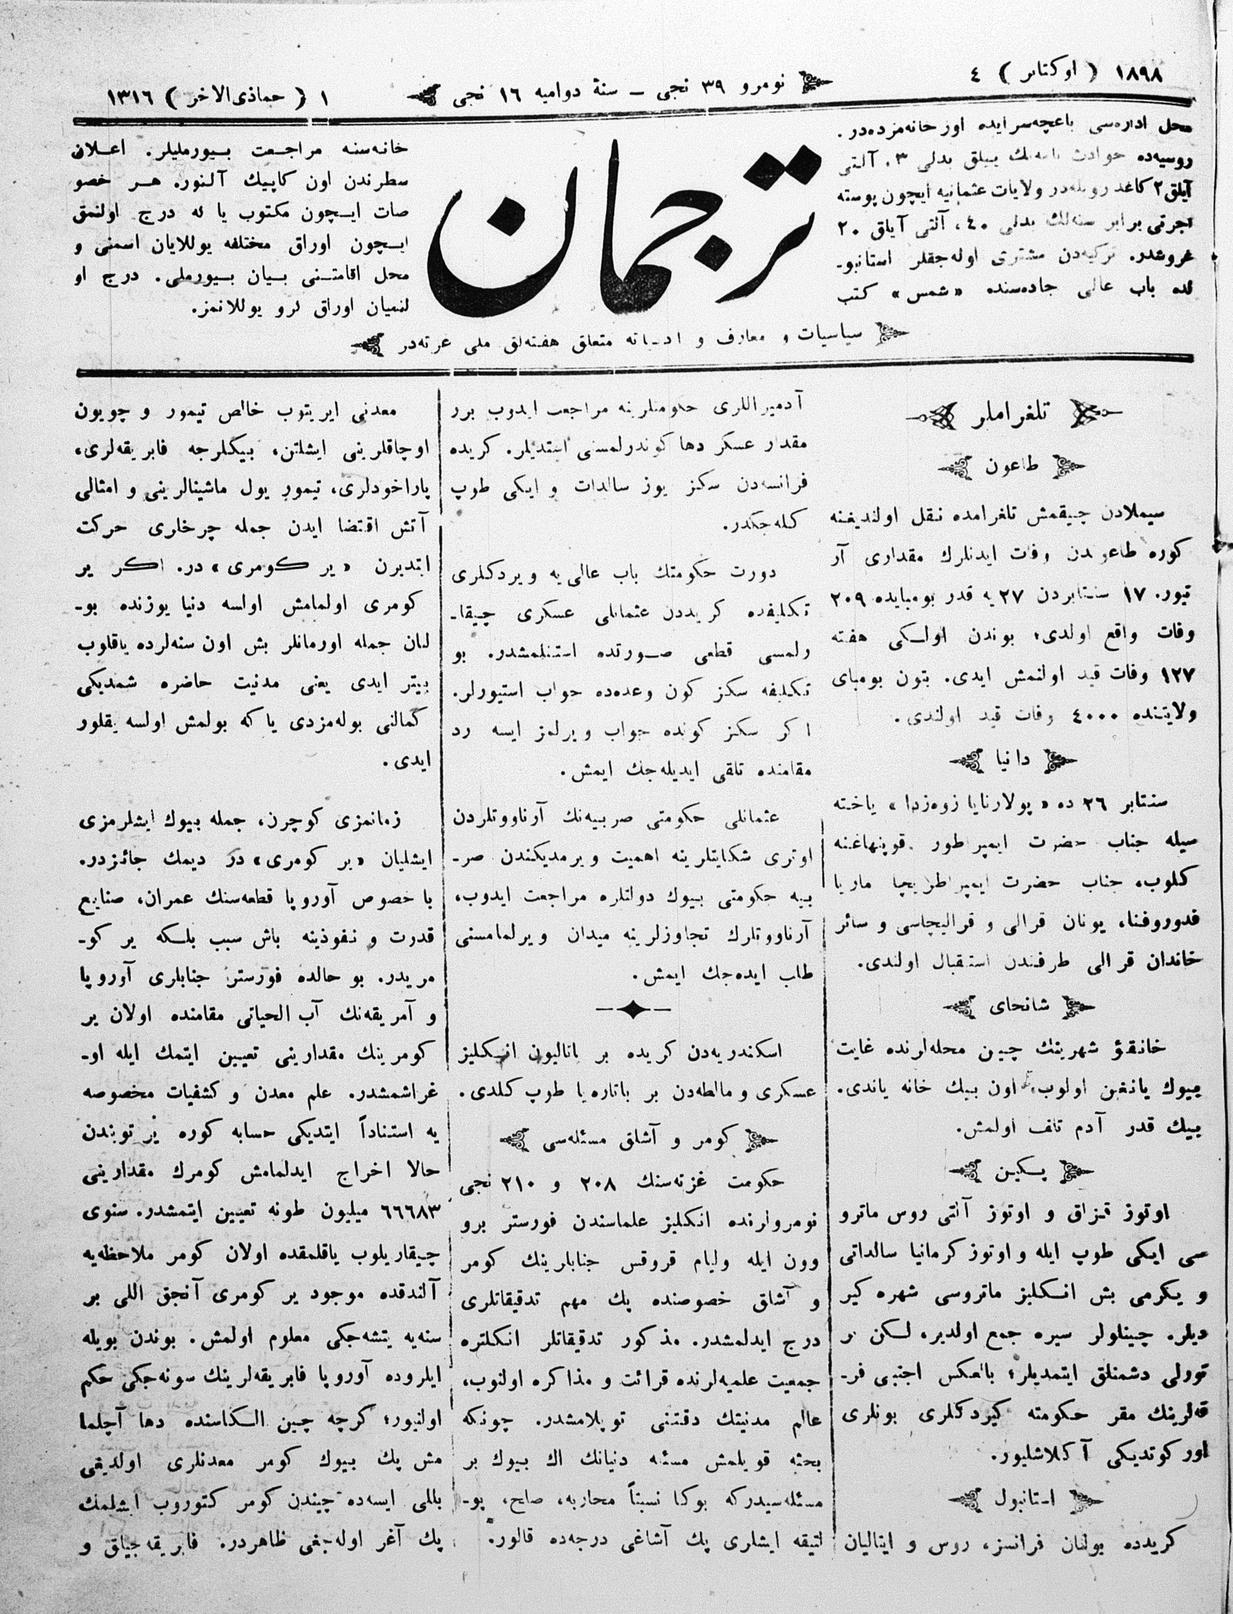 ١٨٩٨ ( اوكتابر ) ٤
نومرو ٣٩ نجی ـ سنۀ دواميه ١٦ نجی
١ ( جماذی الاخر ) ١٣١٦
محل اداره‌سی باغچه‌سرایده اوز خانه‌مزده‌در.
روسیه‌ده حوادث نامه‌نك ییللق بدلی ٣، آلتی
آیلق ٢ كاغد روبله‌در ولایات عثمانیه ایچون پوسته
اجرتی برابر سنه‌لك بدلی ٤٠، آلتی آیلق ٢٠
غروشدر. تركیه‌دن مشتری اوله‌جقلر استانبو‌ـ
لده باب عالی جاده‌سنده «شمس» كتب
ترجمان
خانه‌سنه مراجعت بیورملیلر. اعلان
سطرندن اون كاپیك آلنور. هر خصو
صات ایچون مكتوب یا له درج اولنمق
ایچون اوراق مختلفه یوللایان اسمنی و
محل اقامتنی بیان بیورملی. درج او
لنمیان اوراق كرو یوللانمز.
سیاسیات و معارف و ادبیاته متعلق هفته‌لق ملی غزته‌در
تلغراملر
طاعون
سیملادن چیقمش تلغرامده نقل اولندیغنه
كوره طاعوندن وفات ایدنلرك مقداری آر
تیور. ١٧ سنتابردن ٢٧ یه قدر بومبایده ٢٠٩
وفات واقع اولدی؛ بوندن اولكی هفته
١٢٧ وفات قید اولنمش ایدی. بتون بومبای
ولایتنده ٤٠٠٠ وفات قید اولندی.
دانیا
سنتابر ٢٦ ده «پولارنایا زوه‌زدا» یاخته
سیله جناب حضرت ایمپرطور قوپنهاغنه
كلوب، جناب حضرت ایمپراطریچا ماریا
فدوروفنا، یونان قرالی و قرالیچاسی و سائر
خاندان قرالی طرفندن استقبال اولندی.
شانحای
خانقؤ شهرینك چین محله‌لرنده غایت
بیوك یانغین اولوب، اون بیك خانه یاندی.
بیك قدر آدم تلف اولمش.
پكین
اوتوز قزاق و اوتوز آلتی روس ماترو
سی ایكی طوپ ایله و اوتوز كرمانیا سالداتی
و یكرمی بش انكلیز ماتروسی شهره كیر
دیلر. چینلولر سیره جمع اولدیر. لكن بر
تورلی دشمنلق ایتمدیلر؛ بالعكس اجنبی فر‌ـ
قه‌لرینك مقر حكومته كیردكلری بونلری
اوركوتدیكی آكلاشلیور.
استانبول
كریدده بولنان فرانسز، روس و ایتالیان
آدمیراللری حكومتلرینه مراجعت ایدوب برر
مقدار عسكر دها كوندرلمسی ایستدیلر. كریده
فرانسه‌دن سكز یوز سالدات و ایكی طوپ
كله‌جكدر.
دورت حكومتك باب عالی‌یه ویردكلری
تكلیفده كریددن عثمانلی عسكری چیقا‌ـ
رلمسی قطعی صورتده استنلمشدر. بو
تكلیفه سكز كون وعده‌ده جواب استیورلر.
اكر سكز كونده جواب ویرلمز ایسه رد
مقامنده تلقی ایدیله‌جك ایمش.
عثمانلی حكومتی صربیه‌نك آرناووتلردن
اوتری شكایتلرینه اهمیت ویرمدیكندن صر‌ـ
بیه حكومتی بیوك دولتلره مراجعت ایدوب،
آرناووتلرك تجاوزلرینه میدان ویرلمامسنی
طلب ایده‌جك ایمش.
اسكندریه‌دن كریده بر باتالیون انكلیز
عسكری و مالطه‌دن بر باتاره‌یا طوپ كلدی.
كومر و آشلق مسئله‌سی
حكومت غزته‌سنك ٢٠٨ و ٢١٠ نجی
نومرولرنده انكلیز علماسندن فورستر برو
وون ایله ولیام قروقس جنابلرینك كومر
و آشلق خصوصنده پك مهم تدقیقاتلری
درج ایدلمشدر. مذكور تدقیقاتلر انكلتره
جمعیت علمیه‌لرنده قرائت و مذاكره اولنوب،
عالم مدنیتك دقتنی توپلامشدر. چونكه
بحثه قویلمش مسئله دنیانك اك بیوك بر
مسئله‌سیدركه بوكا نسبتاً محاربه، صلح، پو‌ـ
لتیقه ایشلری پك آشاغی درجه‌ده قالور.
معدنی ایریتوب خالص تیمور و چویون
اوچاقلرینی ایشلتن، بیكلرجه فابریقه‌لری،
پاراخودلری، تیمور یول ماشینالرینی و امثالی
آتش اقتضا ایدن جمله چرخلری حركت
ایتدیرن «یر كومری» در. اكر یر
كومری اولمامش اولسه دنیا یوزنده بو‌ـ
لنان جمله اورمانلر بش اون سنه‌لرده یاقلوب
بیتر ایدی یعنی مدنیت حاضره شمدیكی
كمالنی بوله‌مزدی یا كه بولمش اولسه یقلور
ایدی.
زمانمزی كوچرن، جمله بیوك ایشلرمزی
ایشلیان «یر كومری» در دیمك جائزدر.
با خصوص آوروپا قطعه‌سنك عمران، صنایع
قدرت و نفوذینه باش سبب بلكه یر كو‌ـ
مریدر. بو حالده فورستر جنابلری آوروپا
و آمریقه‌نك آب الحیاتی مقامنده اولان یر
كومرینك مقدارینی تعیین ایتمك ایله او‌ـ
غراشمشدر. علم معدن و كشفیات مخصوصه
یه استناداً ایتدیكی حسابه كوره یر توبندن
حالا اخراج ایدلمامش كومرك مقدارینی
٦٦٦٨٣ میلیون طونه تعیین ایتمشدر. سنوی
چیقاریلوب یاقلمقده اولان كومر ملاحظه‌یه
آلندقده موجود یر كومری آنجق اللی بر
سنه‌یه یتشه‌جكی معلوم اولمش. بوندن بویله
ایلروده آوروپا فابریقه‌لرینك سونه‌جكی حكم
اولنیور؛ كرچه چین الكاسنده دها آچلما
مش پك بیوك كومر معدنلری اولدیغی
بللی ایسه‌ده چیندن كومر كتوروب ایشلمك
پك آغر اوله‌جغی ظاهردر. فابریقه‌جیلق و